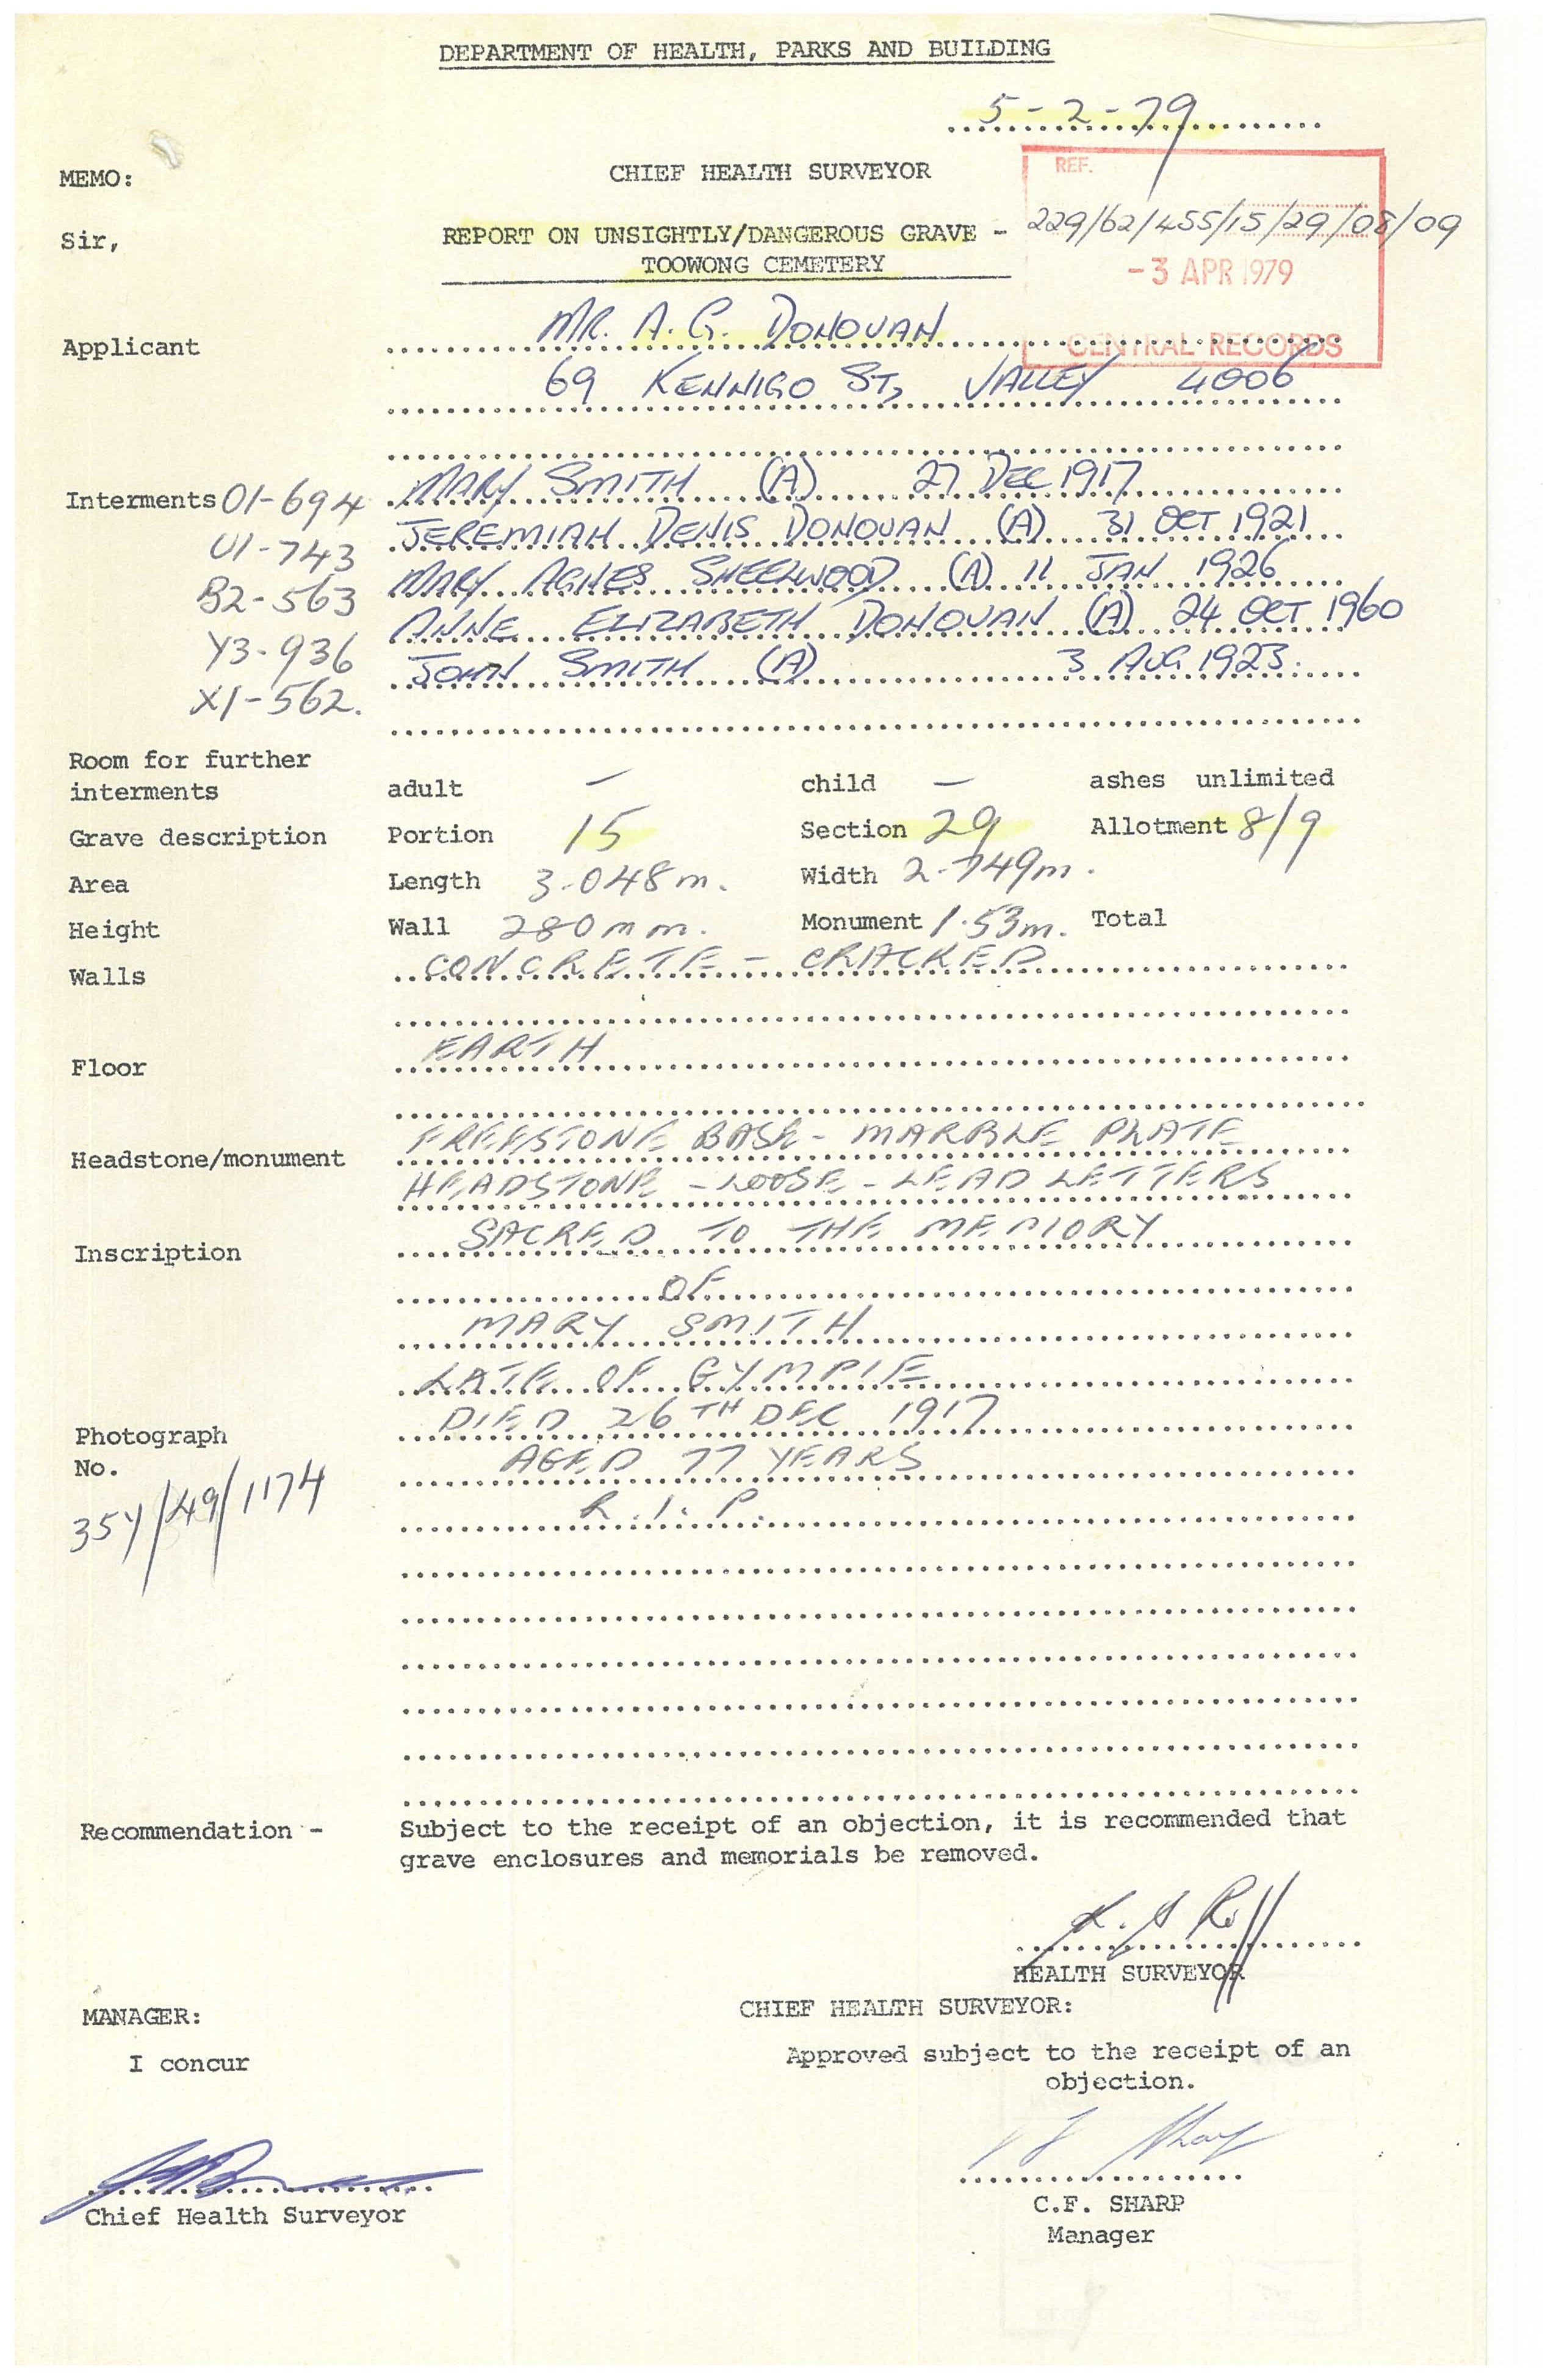 DEPARTMENT OF HEALTH, PARKS AND BUILDING
5-2-79
MEMO: CHIEF HEALTH SURVEYOR REF.
Sir, REPORT ON UNSIGHTLY/DANGEROUS GRAVE - 229/62/455/15/29/08/09
TOOWONG CEMETERY -3 APR 1979
Applicant MR. A. G. DONOVAN CENTRAL RECORDS
69 KENNIGO ST, VALLEY 4006
Interments 01-694 MARY SMITH (A) 27 DEC 1917
U1-743 JEREMIAH DENIS DONOVAN (A) 31 OCT 1921
B2-563 MARY AGNES SHEELWOOD (A) 11 JAN 1926
Y3-936 ANNE ELIZABETH DONOVAN (A) 24 OCT 1960
X1-562. JOHN SMITH (A) 3 AUG 1923.
Room for further
interments adult - child - ashes unlimited
Grave description Portion 15 Section 29 Allotment 8/9
Area Length 3.048m. Width 2.749m.
Height Wall 280mm. Monument 1.53m. Total
Walls CONCRETE - CRACKED
Floor EARTH
Headstone/monument FREESTONE BASE - MARBLE PLATE
HEADSTONE - LOOSE - LEAD LETTERS
Inscription SACRED TO THE MEMORY
OF
MARY SMITH
LATE OF GYMPIE
Photograph DIED 26TH DEC 1917
No. AGED 77 YEARS
35Y/49/1174 R.I.P.
Recommendation - Subject to the receipt of an objection, it is recommended that
grave enclosures and memorials be removed.
HEALTH SURVEYOR
MANAGER: CHIEF HEALTH SURVEYOR:
I concur Approved subject to the receipt of an
objection.
Chief Health Surveyor C.F. SHARP
Manager